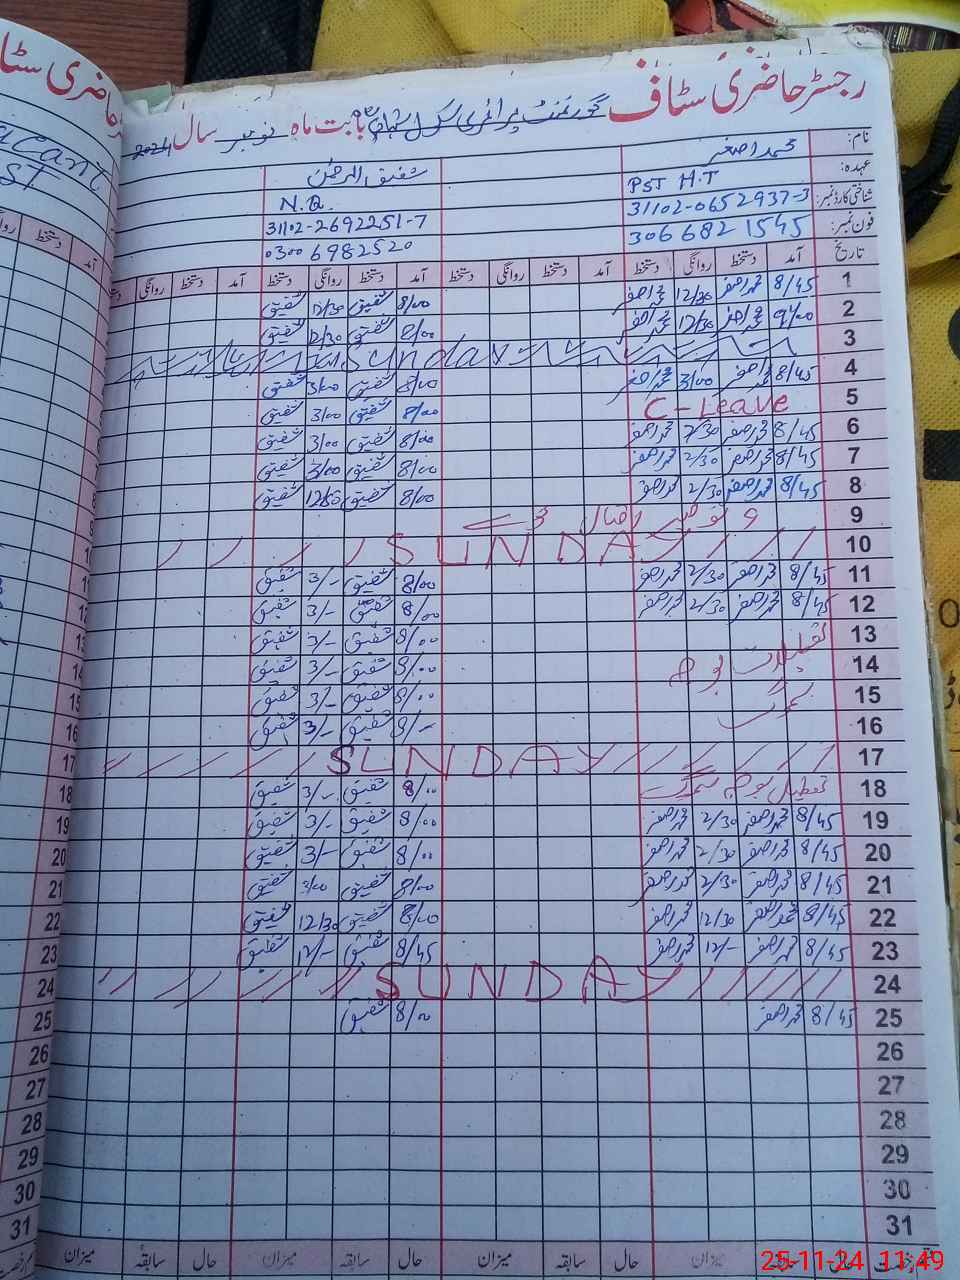 رجسٹر حاضری سٹاف گورنمنٹ پرائمری سکول بابت ماہ نومبر سال 2024
نام: محمد اصغر شفیق الرحمٰن
عہدہ: PST H.T N.Q.
شناختی کارڈ نمبر: 31102-0652937-3 31102-2692251-7
فون نمبر: 306 6821545 0300 6982520
تاریخ آمد دستخط روانگی دستخط آمد دستخط روانگی دستخط آمد دستخط روانگی دستخط آمد دستخط روانگی
1 8/45 محمد اصغر 12/30 محمد اصغر 8/00 شفیق 12/30 شفیق
2 9/00 محمد اصغر 12/30 محمد اصغر 8/00 شفیق 12/30 شفیق
3 Sunday
4 8/45 محمد اصغر 3/00 محمد اصغر 8/00 شفیق 3/00 شفیق
5 C-Leave 8/00 شفیق 3/00 شفیق
6 8/45 محمد اصغر 2/30 محمد اصغر 8/00 شفیق 3/00 شفیق
7 8/45 محمد اصغر 2/30 محمد اصغر 8/00 شفیق 3/00 شفیق
8 8/45 محمد اصغر 2/30 محمد اصغر 8/00 شفیق شفیق
9 9 نومبر اقبال ڈے
10 SUNDAY
11 8/45 محمد اصغر 2/30 محمد اصغر 8/00 شفیق 3/- شفیق
12 8/45 محمد اصغر 2/30 محمد اصغر 8/00 شفیق 3/- شفیق
13 تعطیلات بوجہ 8/00 شفیق 3/- شفیق
14 8/00 شفیق 3/- شفیق
15 سموگ 8/00 شفیق 3/- شفیق
16 8/- شفیق 3/- شفیق
17 SUNDAY
18 تعطیل بوجہ سموگ 8/00 شفیق 3/- شفیق
19 8/45 محمد اصغر 2/30 محمد اصغر 8/00 شفیق 3/- شفیق
20 8/45 محمد اصغر 2/30 محمد اصغر 8/00 شفیق 3/- شفیق
21 8/45 محمد اصغر 2/30 محمد اصغر 8/00 شفیق 3/00 شفیق
22 8/45 محمد اصغر 12/30 محمد اصغر 8/00 شفیق 12/30 شفیق
23 8/45 محمد اصغر 12/- محمد اصغر 8/45 شفیق 12/- شفیق
24 SUNDAY
25 8/45 محمد اصغر 8/00 شفیق
26
27
28
29
30
31
حال سابقہ میزان حال سابقہ میزان حال سابقہ میزان حال سابقہ میزان
25-11-24 11:49